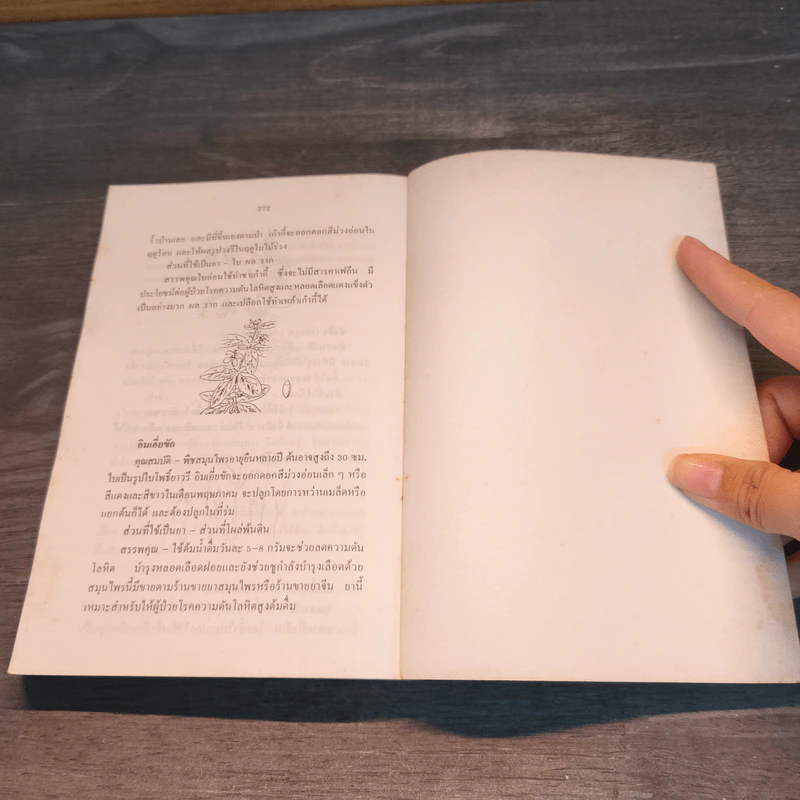 ๔๙๒
รั้วบ้านเลย และมีที่ขึ้นเองตามป่า เก๋ากี้จะออกดอกสีม่วงอ่อนใน
ฤดูร้อน และให้ผลรูปวงรีในฤดูใบไม้ร่วง
ส่วนที่ใช้เป็นยา – ใบ ผล ราก
สรรพคุณใบอ่อนใช้ทำชาเก๋ากี้ ซึ่งจะไม่มีสารคาเฟอีน มี
ประโยชน์ต่อผู้ป่วยโรคความดันโลหิตสูงและหลอดเลือดแดงแข็งตัว
เป็นอย่างมาก ผล ราก และเปลือกใช้ทำเหล้าเก๋ากี้ได้
อิมเอี่ยขัก
คุณสมบัติ – พืชสมุนไพรอายุยืนหลายปี ต้นอาจสูงถึง 30 ซม.
ใบเป็นรูปใบโพธิ์ยาวรี อิมเอี่ยขักจะออกดอกสีม่วงอ่อนเล็ก ๆ หรือ
สีแดงและสีขาวในเดือนพฤษภาคม จะปลูกโดยการหว่านเมล็ดหรือ
แยกต้นก็ได้ และต้องปลูกในที่ร่ม
ส่วนที่ใช้เป็นยา – ส่วนที่โผล่พ้นดิน
สรรพคุณ – ใช้ต้มน้ำดื่มวันละ 5-8 กรัมจะช่วยลดความดัน
โลหิต บำรุงหลอดเลือดฝอยและยังช่วยชูกำลังบำรุงเลือดด้วย
สมุนไพรนี้มีขายตามร้านขายยาสมุนไพรหรือร้านขายยาจีน ยานี้
เหมาะสำหรับให้ผู้ป่วยโรคความดันโลหิตสูงต้มดื่ม